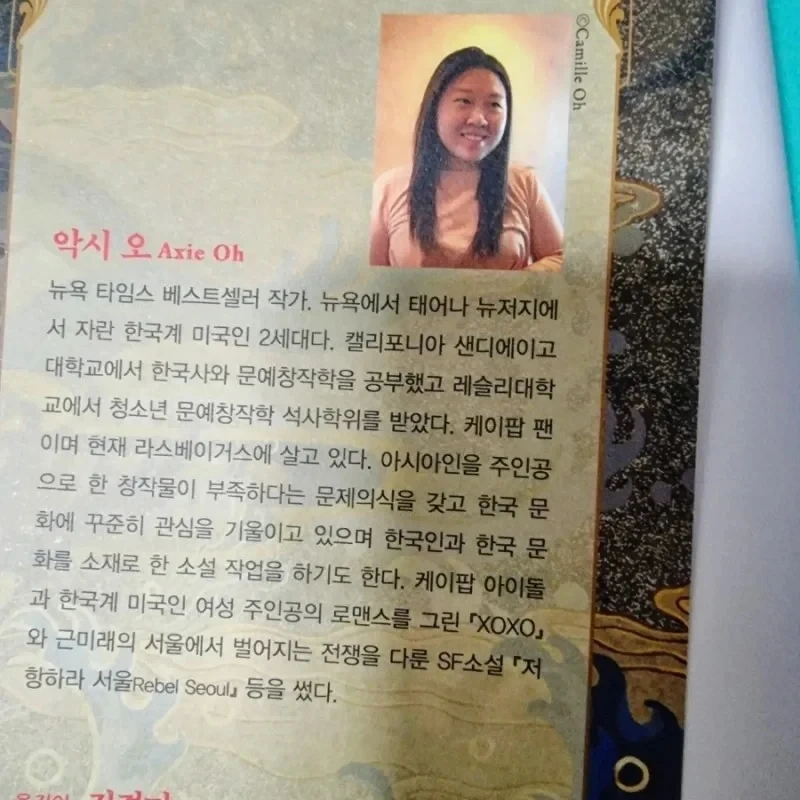 ©Camille Oh
악시 오 Axie Oh
뉴욕 타임스 베스트셀러 작가. 뉴욕에서 태어나 뉴저지에
서 자란 한국계 미국인 2세대다. 캘리포니아 샌디에이고
대학교에서 한국사와 문예창작학을 공부했고 레슬리대학
교에서 청소년 문예창작학 석사학위를 받았다. 케이팝 팬
이며 현재 라스베이거스에 살고 있다. 아시아인을 주인공
으로 한 창작물이 부족하다는 문제의식을 갖고 한국 문
화에 꾸준히 관심을 기울이고 있으며 한국인과 한국 문
화를 소재로 한 소설 작업을 하기도 한다. 케이팝 아이돌
과 한국계 미국인 여성 주인공의 로맨스를 그린 『XOXO』
와 근미래의 서울에서 벌어지는 전쟁을 다룬 SF소설 『저
항하라 서울Rebel Seoul』 등을 썼다.